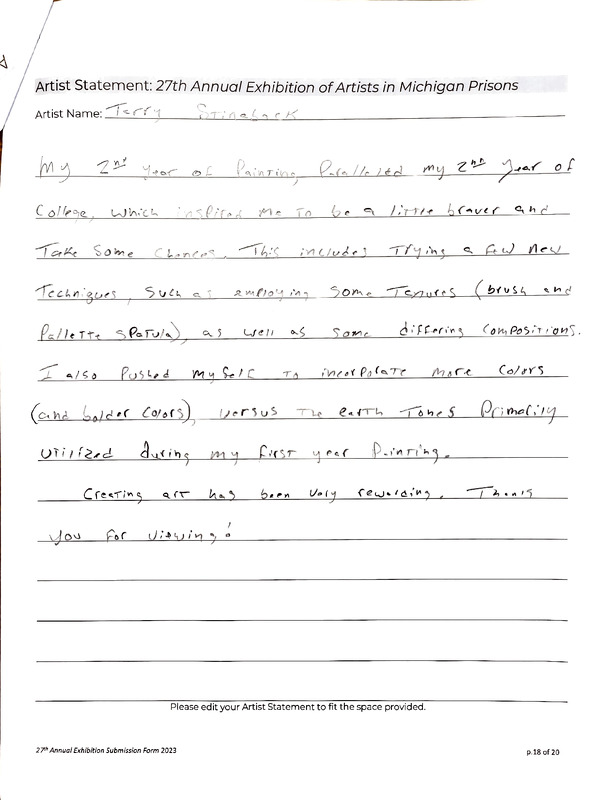 Artist Statement: 27th Annual Exhibition of Artists in Michigan Prisons
Artist Name: Terry
My 2nd year of Painting Paralleled my 2nd year of
College, which inspired me to be a little braver and
Take Some Chances. This includes Trying a few new
Techniques, Such as employing some Textures (brush and
Pallette SPatula), as well as some differing Compositions.
I also Pushed Myself to incorporate more Colors
(and bolder Colors), versus The earth Tones Primarily
Utilized during my first year Painting.
Creating art has been very rewarding. Thank
you for viewing!
Please edit your Artist Statement to fit the space provided.
27th Annual Exhibition Submission Form 2023
p.18 of 20